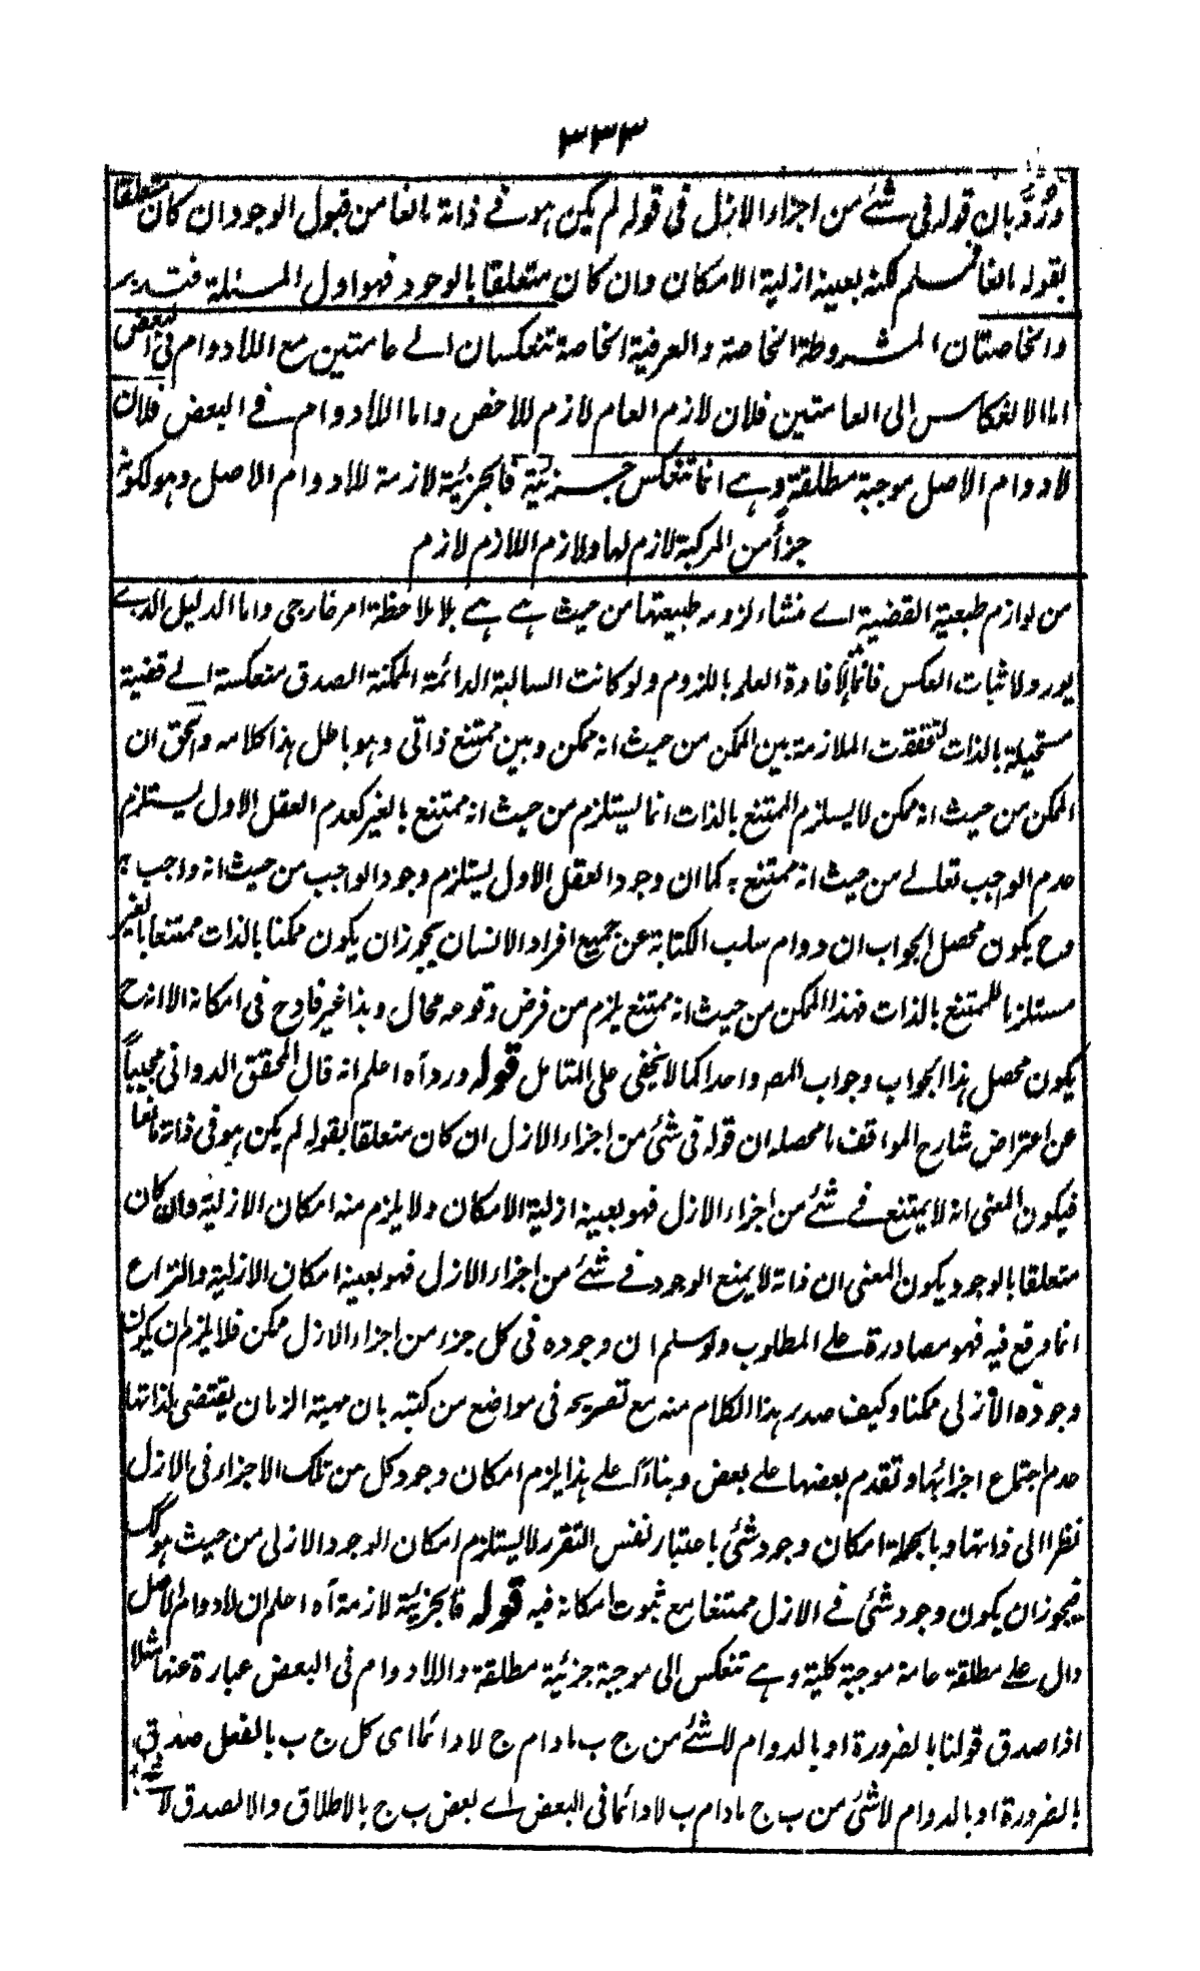 ٣٣٣
ورُدَّ بان قوله فى شئ من اجزاء الازل فى قوله لم يكن هو فے ذاته مانعا من قبول الوجود ان كان متعلقا
بقوله مانعا فمسلم لكنه بعينه ازلية الامكان وان كان متعلقا بالوجود فهو اول المسئلة فتدبر
والخاصتان المشروطة الخاصة والعرفية الخاصة تنعكسان الے عامتين مع اللادوام فى البعض
اما الانعكاس الى العامتين فلان لازم العام لازم للاخص واما اللادوام فے البعض فلان
لادوام الاصل موجبة مطلقة وهے انما تنعكس جزئية فالجزئية لازمة للادوام الاصل وهو لكونه
جزأ من المركبة لازم لها ولازم اللازم لازم
من لوازم طبعية القضية اے منشاء لزومه طبيعتها من حيث هے هے بلا ملاحظة امر خارجى واما الدليل الذے
يورد لاثبات العكس فانما لافادة العلم باللزوم ولو كانت السالبة الدائمة الممكنة الصدق منعكسة الے قضية
مستحيلة بالذات لتحققت الملازمة بين الممكن من حيث انه ممكن وبين ممتنع ذاتى وهو باطل هذا كلامه والحق ان
الممكن من حيث انه ممكن لا يستلزم الممتنع بالذات انما يستلزم من حيث انه ممتنع بالغير كعدم العقل الاول يستلزم
عدم الواجب تعالے من حيث انه ممتنع به كما ان وجود العقل الاول يستلزم وجود الواجب من حيث انه واجب به
وح يكون محصل الجواب ان دوام سلب الكتابة عن جميع افراد الانسان يجوز ان يكون ممكنا بالذات ممتنعا بالغير
مستلزما للممتنع بالذات فهذا الممكن من حيث انه ممتنع يلزم من فرض وقوعه محال وهذا غير قادح فى امكانه الا انه ح
يكون محصل هذا الجواب وجواب المص واحدا كما لا يخفى على المتامل قوله ورد آه اعلم انه قال المحقق الدوانى مجيباً
عن اعتراض شارح المواقف ما محصله ان قوله فى شئ من اجزاء الازل ان كان متعلقا بقوله لم يكن هو فى ذاته مانعا
فيكون المعنى انه لا يمتنع فے شئ من اجزاء الازل فهو بعينه ازلية الامكان ولا يلزم منه امكان الازلية وان كان
متعلقا بالوجود يكون المعنى ان ذاته لا يمنع الوجود فے شئ من اجزاء الازل فهو بعينه امكان الازلية والنزاع
انما وقع فيه فهو مصادرة علے المطلوب ولو سلم ان وجوده فى كل جزء من اجزاء الازل ممكن فلا يلزم ان يكون
وجوده الازلى ممكنا وكيف صدر هذا الكلام منه مع تصريحه فى مواضع من كتبه بان مهية الزمان يقتضى لذاتها
عدم اجتماع اجزائها وتقدم بعضها علے بعض وبناءً علے هذا يلزم امكان وجود كل من تلك الاجزاء فى الازل
نظرا الى ذاتها وبالجملة امكان وجود شئ باعتبار نفس التقرر لا يستلزم امكان الوجود الازلى من حيث هو كك
فيجوز ان يكون وجود شئ فے الازل ممتنعا مع ثبوت امكانه فيه قوله فالجزئية لازمة آه اعلم ان لادوام الاصل
دال علے مطلقة عامة موجبة كلية وهے تنعكس الى موجبة جزئية مطلقة واللادوام فى البعض عبارة عنها مثلا
اذا صدق قولنا بالضرورة او بالدوام لا شئ من ج ب مادام ج لا دائما اى كل ج ب بالفعل صدق
بالضرورة او بالدوام لا شئ من ب ج مادام ب لا دائما فى البعض اے بعض ب ج بالاطلاق والا لصدق لا شئ